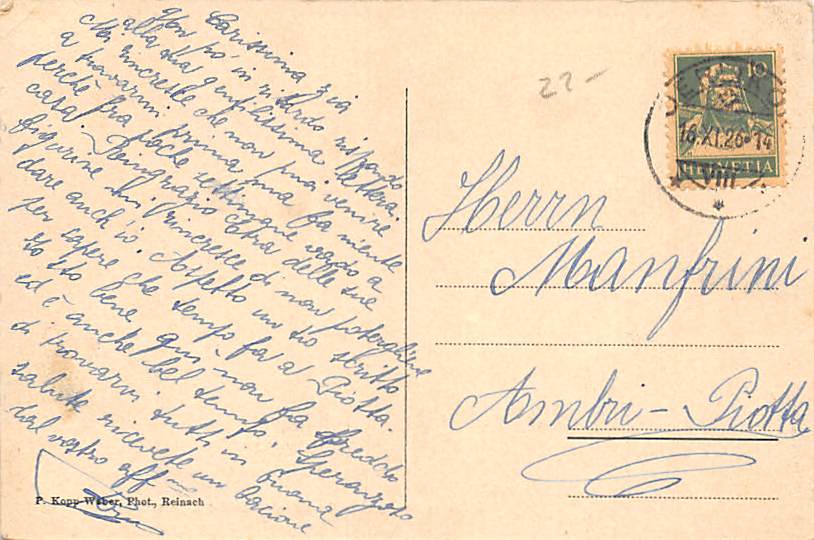 Carissima zia
Non po' in ritardo rispondo
alla tua gentilissima lettera.
Mi rincresce che non puoi venire
a trovarmi prima ma fa niente
perchè fra poche settimane vado a
casa. Ringrazio cara delle sue
figurine mi rincresce di non potergliene
dare anch'io. Aspetto un tuo scritto
per sapere che tempo fa a Piotta.
Io sto bene qui non fa freddo
ed è anche bel tempo. Sperando
di trovarvi tutti in buona
salute ricevete un bacione
dal vostro aff
P. Kopp-Weber, Phot., Reinach
22-
10
16.XI.26-14
HELVETIA
VIII
Herrn
Manfrini
Ambri-Piotta